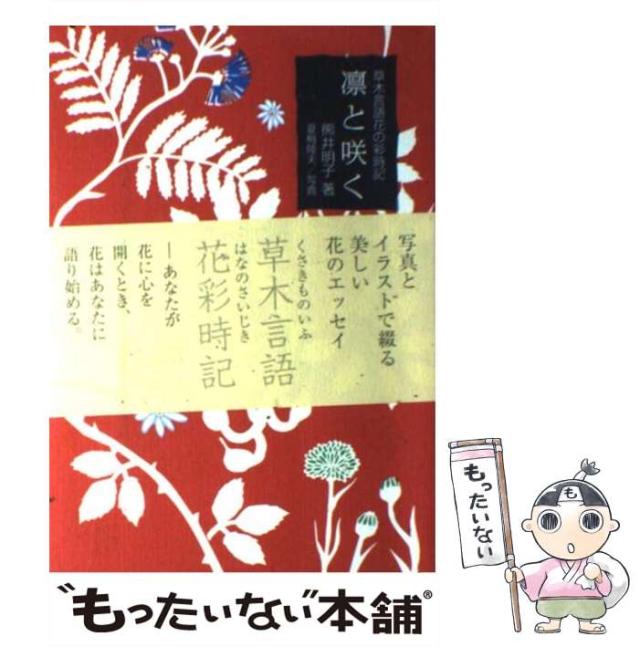 草木言語花の彩時記
凛と咲く
熊井明子 著
写真と
イラストで綴る
美しい
花のエッセイ
くさきものいふ
草木言語
はなのさいじき
花彩時記
―あなたが
花に心を
開くとき、
花はあなたに
語り始める。
もったいない
も
"もったいない"本舗®